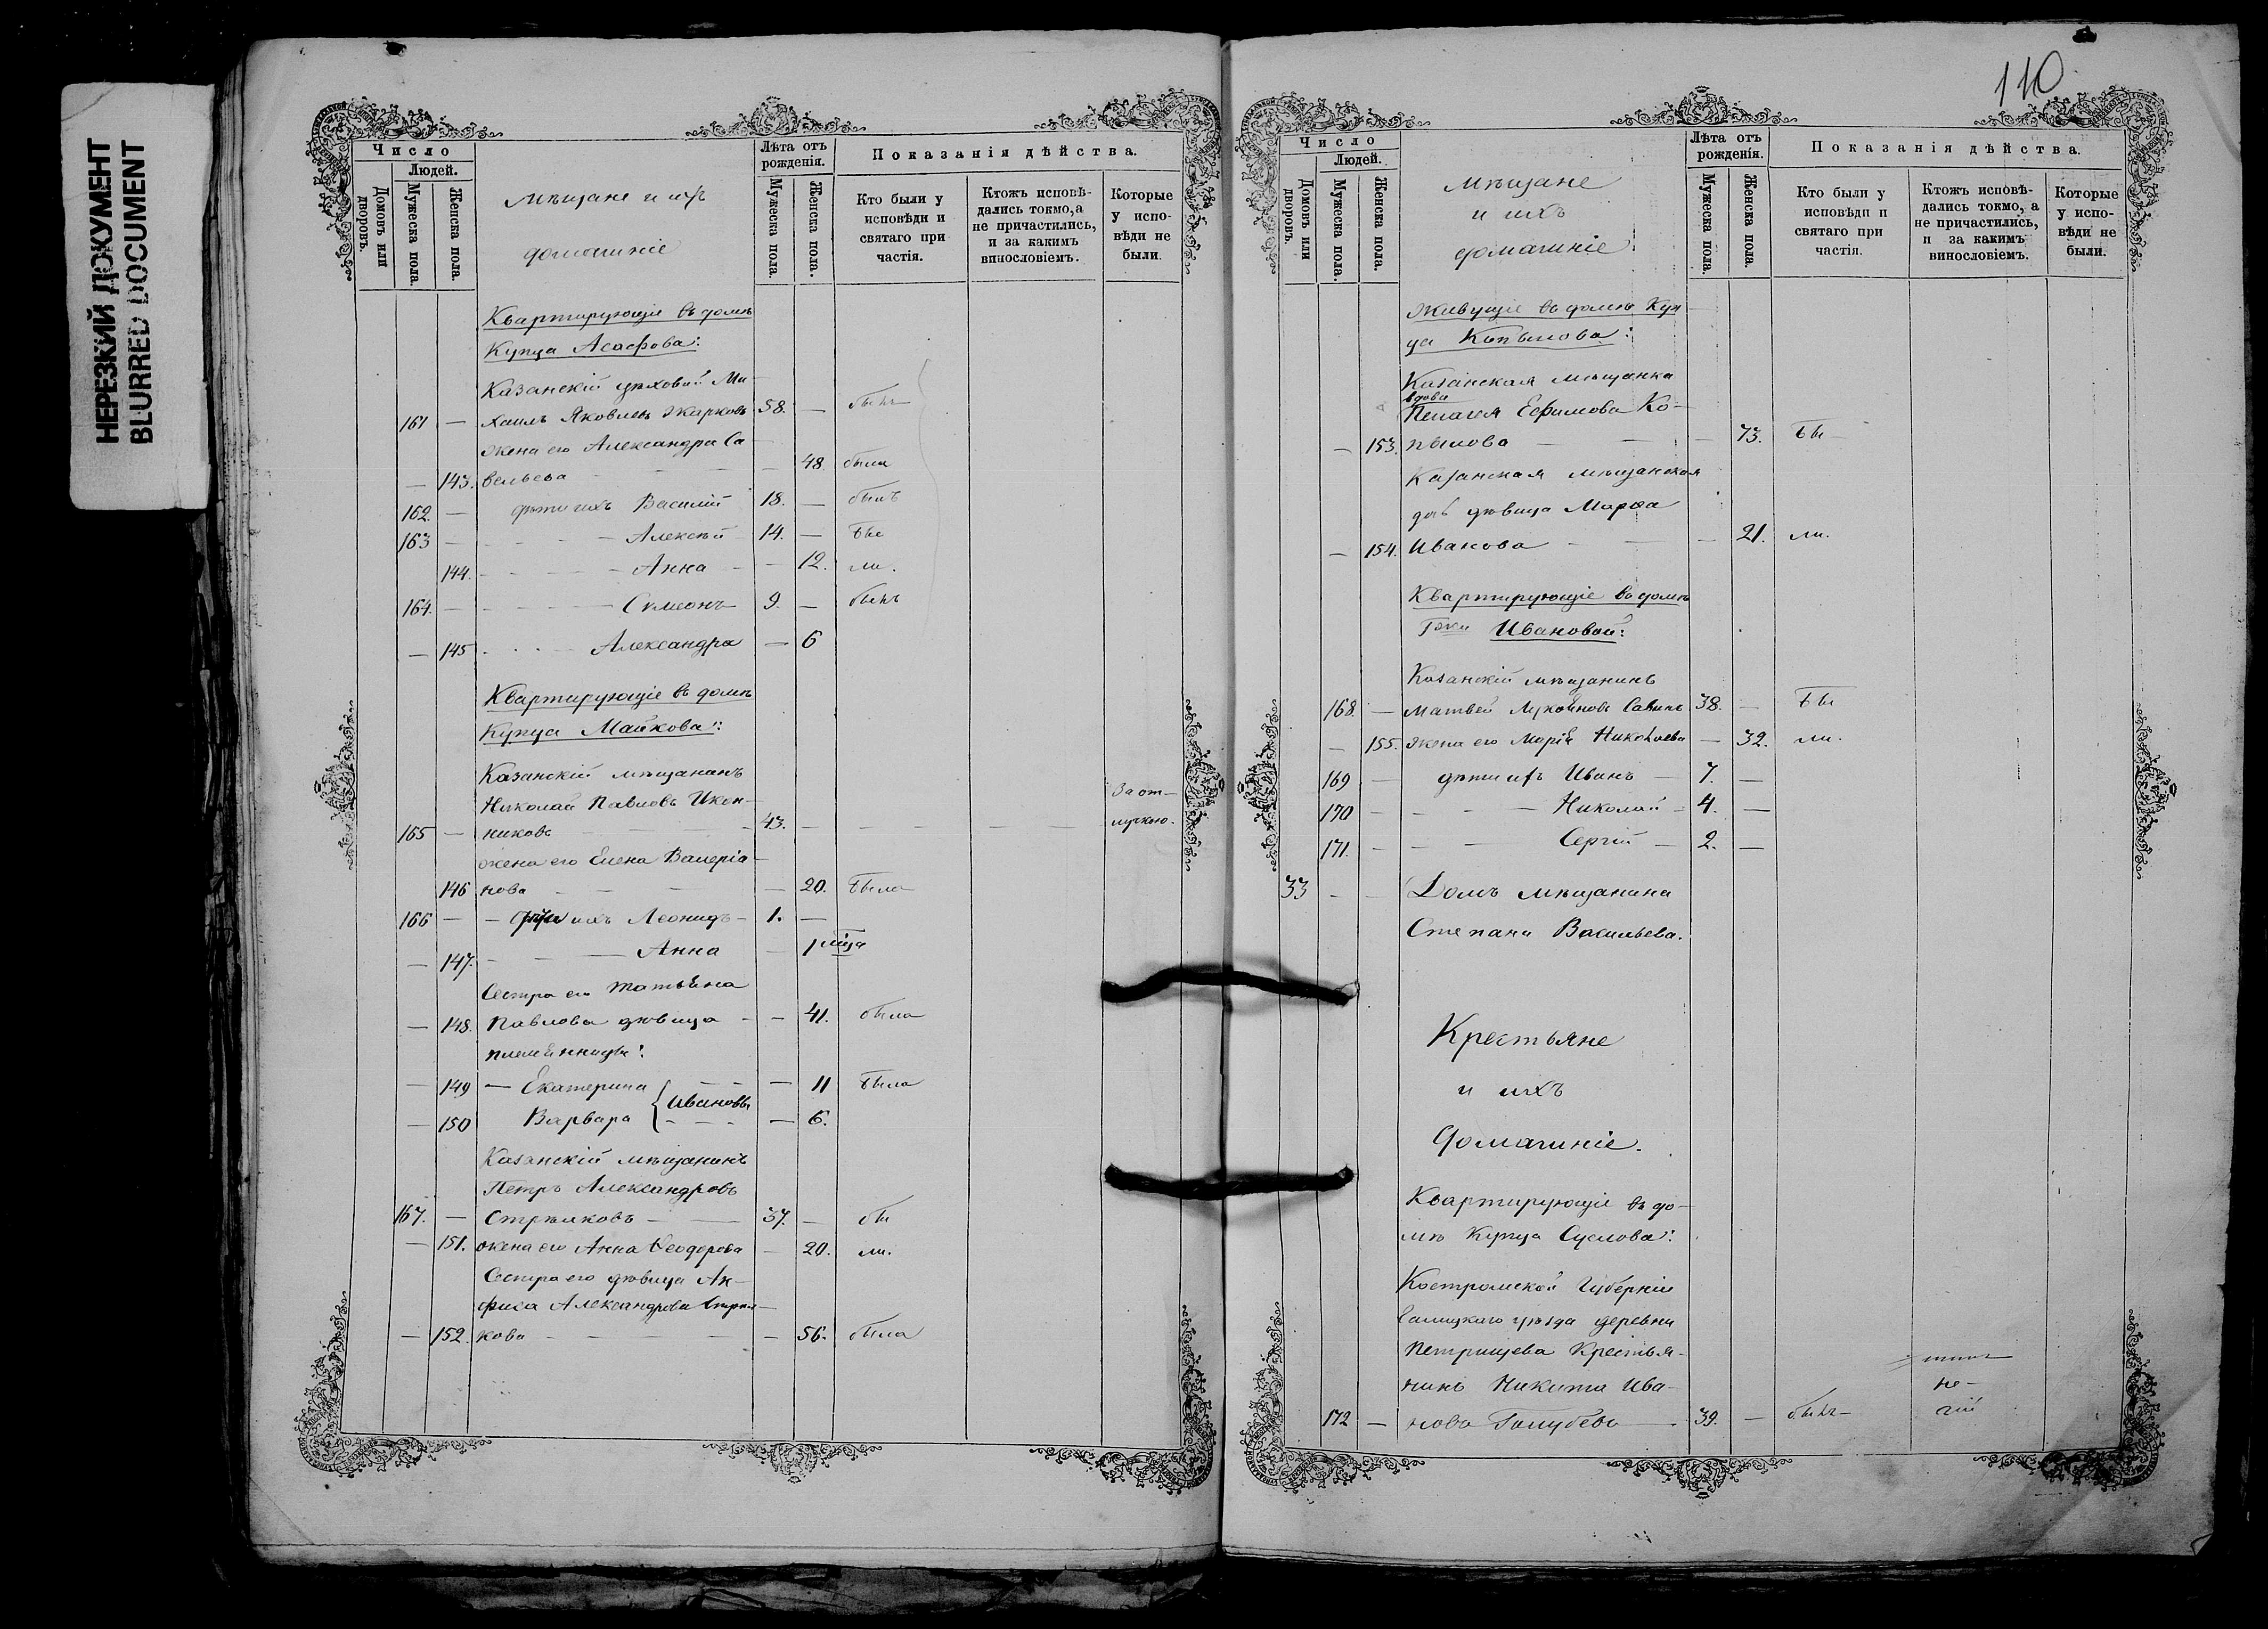 НЕРЕЗКИЙ ДОКУМЕНТ
BLURRED DOCUMENT
Число
Людей.
Домовъ или дворовъ.
Мужеска пола
Женска пола.
Мѣщане и ихъ
домашніе
Лѣта отъ рожденія.
Мужеска пола.
Женска пола.
Показанія дѣйства.
Кто были у исповѣди и святаго причастія.
Ктожъ исповѣдались токмо, а не причастились, и за какимъ винословіемъ.
Которые у исповѣди не были.
Квартирующіе въ домѣ
Купца Асафова:
Казанскій цѣховой Ми
161 — хаилъ Яковлевъ Жарковъ 58. — былъ
жена его Александра Са
— 143. вельева — 48. была
162. — дѣти ихъ Василій 18. — былъ
163 — Алексѣй 14. — бы
144. Анна — 12. ли.
164. — Симеонъ 9. — былъ
— 145 Александра — 6
Квартирующіе въ домѣ
Купца Майкова:
Казанскій мѣщанинъ
Николай Павловъ Икон-
165 — никовъ 43. — За от-
лучкою.
жена его Елена Валеріа
146 нова — 20. была
166 — ихъ Леонидъ — 1. —
— 147. Анна — 1 мѣца
Сестра его Татьяна
— 148. Павлова дѣвица — 41. была
племянницы:
— 149 — Екатерина — 11 была
Ивановы
— 150 Варвара — 6.
Казанскій мѣщанинъ
Петръ Александровъ
167. — Стрѣлковъ — 37. — бы
— 151. жена его Анна Ѳеодорова — 20. ли.
Сестра его дѣвица Ан-
фиса Александрова Стрѣл-
— 152. кова — 56. была
110
Число
Людей.
Домовъ или дворовъ.
Мужеска пола
Женска пола.
Мѣщане
и ихъ
домашніе
Лѣта отъ рожденія.
Мужеска пола.
Женска пола.
Показанія дѣйства.
Кто были у исповѣди и святаго причастія.
Ктожъ исповѣдались токмо, а не причастились, и за какимъ винословіемъ.
Которые у исповѣди не были.
Живущіе въ домѣ Куп
ца Копылова:
Казанская мѣщанка
вдова
Пелагея Ефимова Ко-
— 153. пылова — 73. бы
Казанская мѣщанская
дочь дѣвица Марѳа
— 154. Иванова — 21. ли.
Квартирующіе въ домѣ
Г-жи Ивановой:
Казанскій мѣщанинъ
168. — Матвей Савинъ 38. — бы
— 155. жена его Марія Николаева — 32. ли.
169 — дѣти ихъ Иванъ — 7. —
170 Николай — 4. —
171. Сергій — 2. —
33 Домъ мѣщанина
Степана Васильева.
Крестьяне
и ихъ
Домашніе.
Квартирующіе въ до-
мѣ Купца Суслова:
Костромской Губерніи
Галицкаго уѣзда деревни
Петрищева Крестья-
нинъ Никита Ива-
172 — новъ Голубевъ 39. — былъ